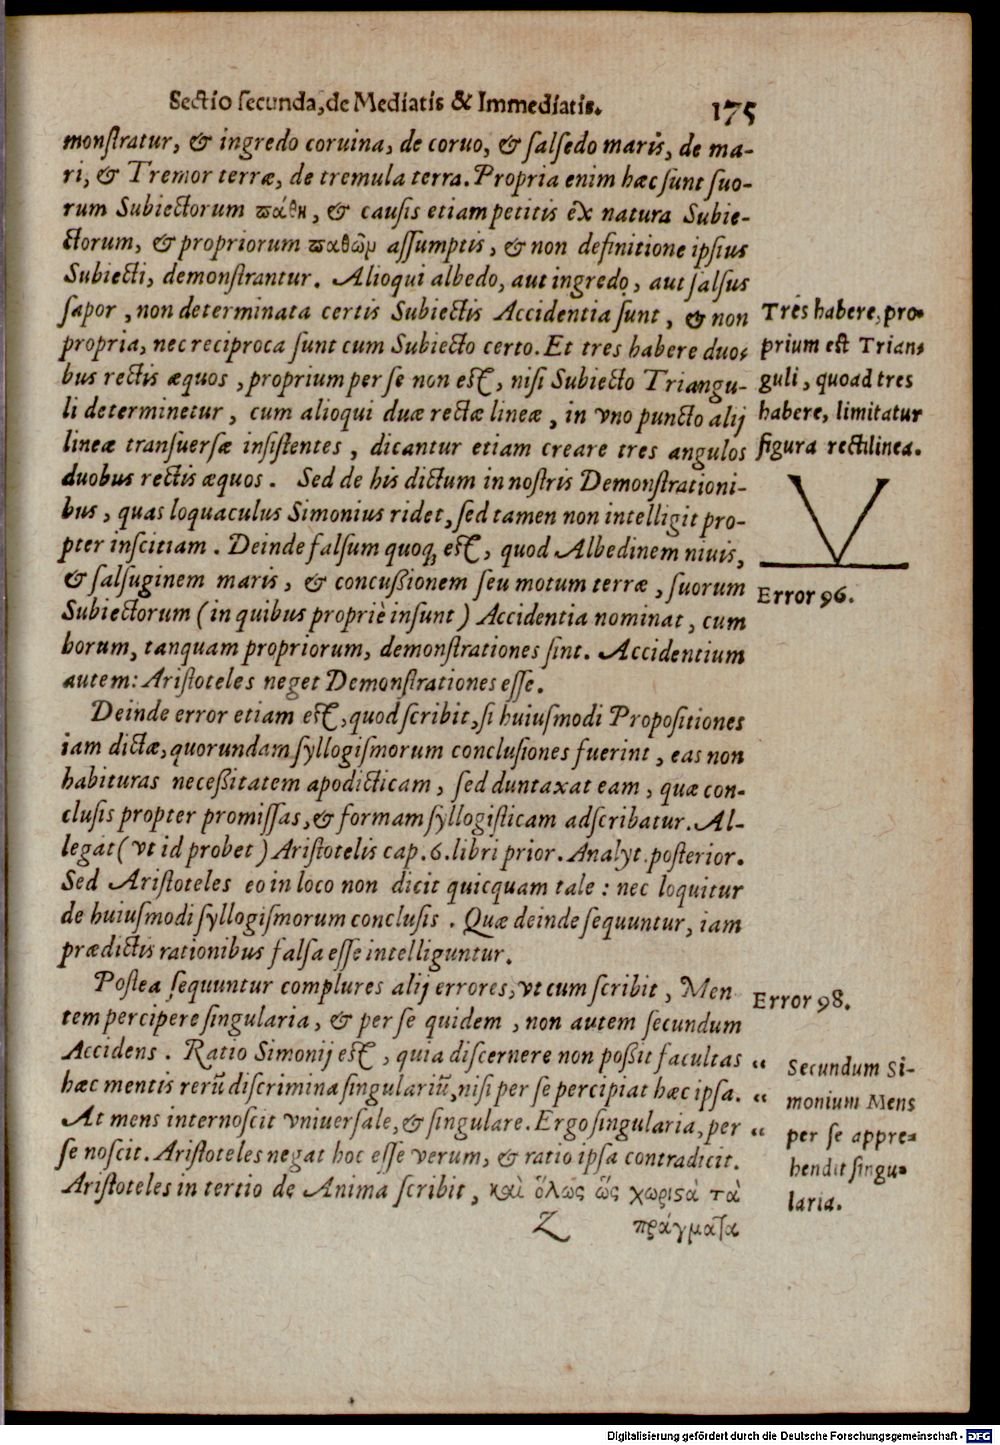 Sectio secunda, de Mediatis & Immediatis. 175
monſtratur, & ingredo coruina, de coruo, & ſalſedo maris, de ma-
ri, & Tremor terræ, de tremula terra. Propria enim hæc ſunt ſuo-
rum Subiectorum ϖάθη, & causis etiam petitis ex natura Subie-
ctorum, & propriorum ϖαθῶν aſſumptis, & non definitione ipſius
Subiecti, demonſtrantur. Alioqui albedo, aut ingredo, aut ſalſus
ſapor, non determinata certis Subiectis Accidentia ſunt, & non
propria, nec reciproca ſunt cum Subiecto certo. Et tres habere duo-
bus rectis æquos, proprium per ſe non eſt, niſi Subiecto Triangu-
li determinetur, cum alioqui duæ rectæ lineæ, in vno puncto alij
lineæ tranſuerſæ inſiſtentes, dicantur etiam creare tres angulos
duobus rectis æquos. Sed de his dictum in noſtris Demonſtrationi-
bus, quas loquaculus Simonius ridet, ſed tamen non intelligit pro-
pter inſcitiam. Deinde falſum quoq; eſt, quod Albedinem niuis,
& ſalſuginem maris, & concuſsionem ſeu motum terræ, ſuorum
Subiectorum (in quibus propriè inſunt) Accidentia nominat, cum
horum, tanquam propriorum, demonſtrationes ſint. Accidentium
autem: Ariſtoteles neget Demonſtrationes eſſe.
Deinde error etiam eſt, quod ſcribit, ſi huiuſmodi Propoſitiones
iam dictæ, quorundam ſyllogiſmorum concluſiones fuerint, eas non
habituras neceſsitatem apodicticam, ſed duntaxat eam, quæ con-
cluſis propter promiſſas, & formam ſyllogiſticam adſcribatur. Al-
legat (vt id probet) Ariſtotelis cap. 6. libri prior. Analyt. poſterior.
Sed Ariſtoteles eo in loco non dicit quicquam tale: nec loquitur
de huiuſmodi ſyllogiſmorum concluſis. Quæ deinde ſequuntur, iam
prædictis rationibus falſa eſſe intelliguntur.
Poſtea ſequuntur complures alij errores, vt cum ſcribit, Men
tem percipere ſingularia, & per ſe quidem, non autem ſecundum
Accidens. Ratio Simonij eſt, quia diſcernere non poſsit facultas
hæc mentis rerũ diſcrimina ſingulariũ, niſi per ſe percipiat hæc ipſa.
At mens internoſcit vniuerſale, & ſingulare. Ergo ſingularia, per
ſe noſcit. Ariſtoteles negat hoc eſſe verum, & ratio ipſa contradicit.
Ariſtoteles in tertio de Anima ſcribit, καὶ ὅλως ὡς χωριϛὰ τὰ
Z πράγματα
Tres habere, pro-
prium est Trian-
guli, quoad tres
habere, limitatur
figura rectilinea.
Error 96.
Error 98.
“ Secundum Si-
“ monium Mens
“ per ſe appre-
hendit ſingu-
laria.
Digitalisierung gefördert durch die Deutsche Forschungsgemeinschaft - DFG